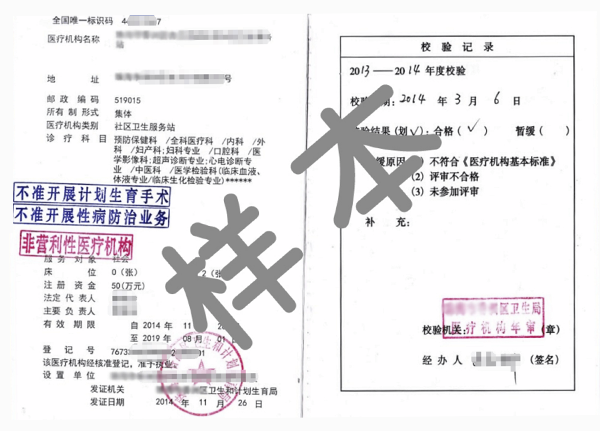 全国唯一标识码 44 7
医疗机构名称
站
地 址 号
邮政编码 519015
所有制形式 集体
医疗机构类别 社区卫生服务站
诊疗科目 预防保健科 /全科医疗科 /内科 /外
科 /妇产科;妇科专业 /口腔科 /医
学影像科;超声诊断专业;心电诊断专
业 /中医科 /医学检验科(临床血液、
体液专业/临床生化检验专业)******
不准开展计划生育手术
不准开展性病防治业务
非营利性医疗机构
服务对象 社会
床 位 0(张) 2(张)
注册资金 50(万元)
法定代表人
主要负责人
有效期限 自 2014 年 11
至 2019 年 08 月 01
登记号 7673 2 01
该医疗机构经核准登记,准予执业。
设置单位
发证机关 区卫生和计划生育局
发证日期 2014 年 11 月 26 日
卫生和计划
样本
校验记录
2013——2014年度校验
校验日期:2014 年 3 月 6 日
校验结果(划√):合格(√) 暂缓( )
暂缓原因:(1) 不符合《医疗机构基本标准》
(2) 评审不合格
(3) 未参加评审
补 充:
区卫生局
医疗机构年审
校验机关: (章)
经办人 (签名)